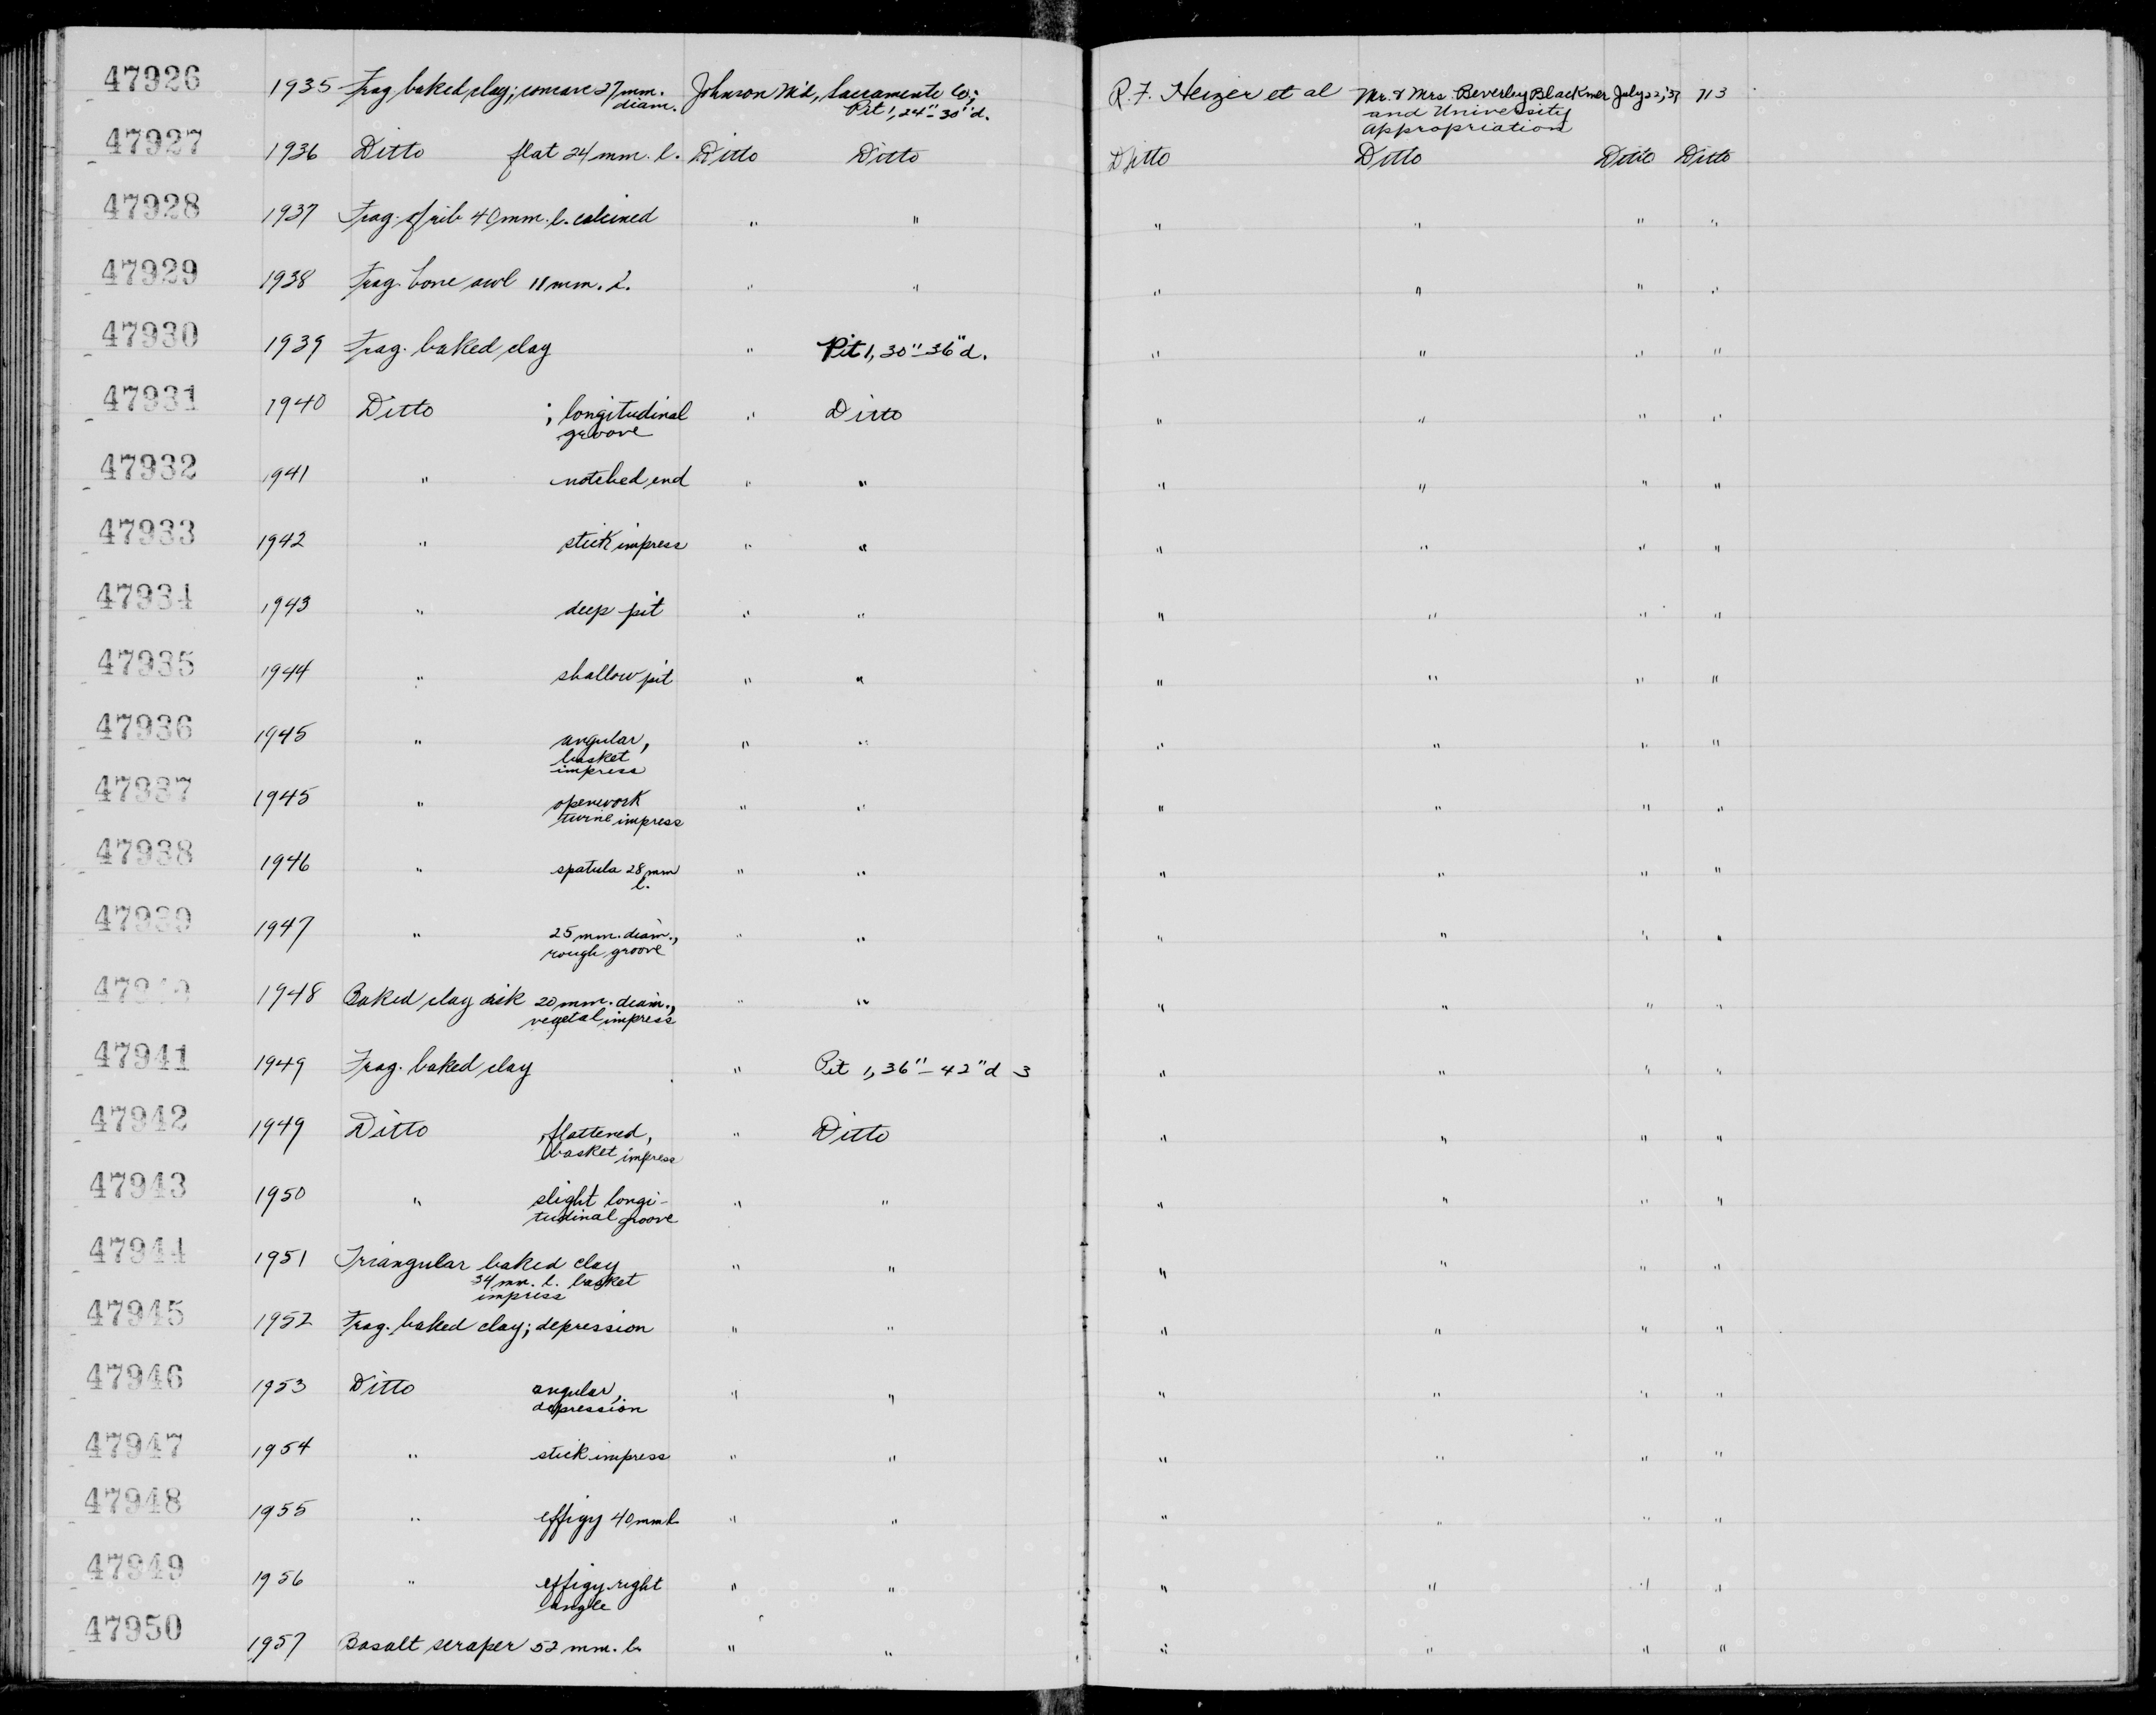 47926 1935 Frag baked clay; concave 27 mm. diam. Johnson M'd, Sacramento Co.; Pit 1, 24"-30" d. R. F. Heizer et al Mr. & Mrs. Beverley Blackmer and University Appropriation July 22, '37 713
47927 1936 Ditto flat 24 mm. l. Ditto Ditto Ditto Ditto Ditto Ditto
47928 1937 Frag. of rib 40 mm. l. calcined " " " " " "
47929 1938 Frag. bone awl 11 mm. l. " " " " " "
47930 1939 Frag. baked clay " Pit 1, 30"-36" d. " " " "
47931 1940 Ditto ; longitudinal groove " Ditto " " " "
47932 1941 " notched end " " " " " "
47933 1942 " stick impress " " " " " "
47934 1943 " deep pit " " " " " "
47935 1944 " shallow pit " " " " " "
47936 1945 " angular, basket impress " " " " " "
47937 1945 " openwork twine impress " " " " " "
47938 1946 " spatula 28 mm l. " " " " " "
47939 1947 " 25 mm. diam., rough groove " " " " " "
47940 1948 Baked clay disk 20 mm. diam., vegetal impress " " " " " "
47941 1949 Frag. baked clay " Pit 1, 36"-42" d 3 " " " "
47942 1949 Ditto , flattened, basket impress " Ditto " " " "
47943 1950 " slight longi-tudinal groove " " " " " "
47944 1951 Triangular baked clay 34 mm. l. basket impress " " " " " "
47945 1952 Frag. baked clay; depression " " " " " "
47946 1953 Ditto angular, depression " " " " " "
47947 1954 " stick impress " " " " " "
47948 1955 " effigy 40 mm l " " " " " "
47949 1956 " effigy right angle " " " " " "
47950 1957 Basalt scraper 52 mm. l. " " " " " "